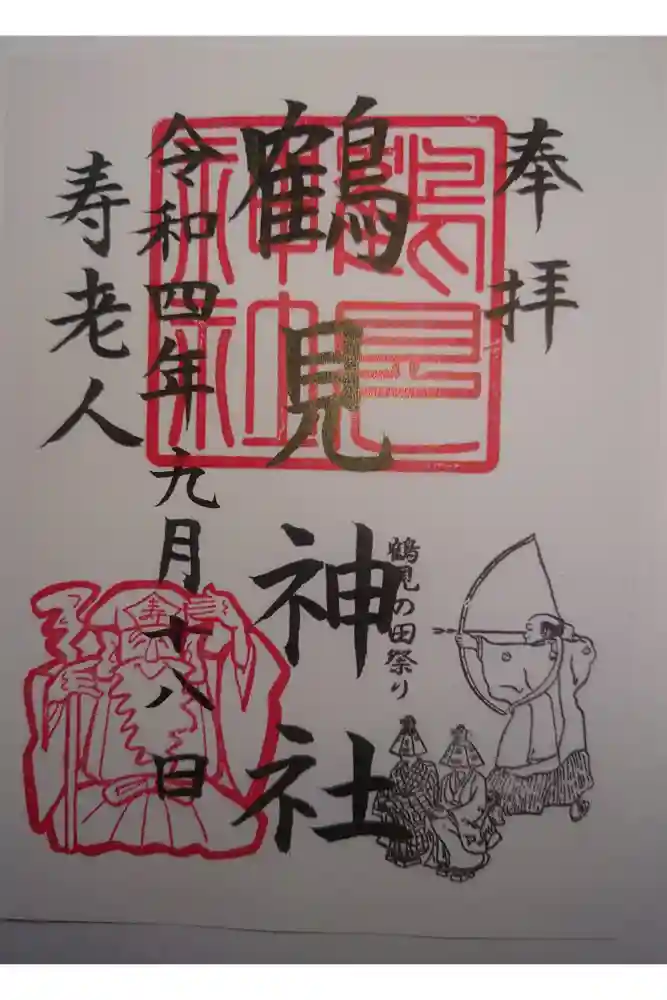 奉拝
鶴見神社
鶴見の田祭り
令和四年九月十八日
寿老人
鶴見神社
寿